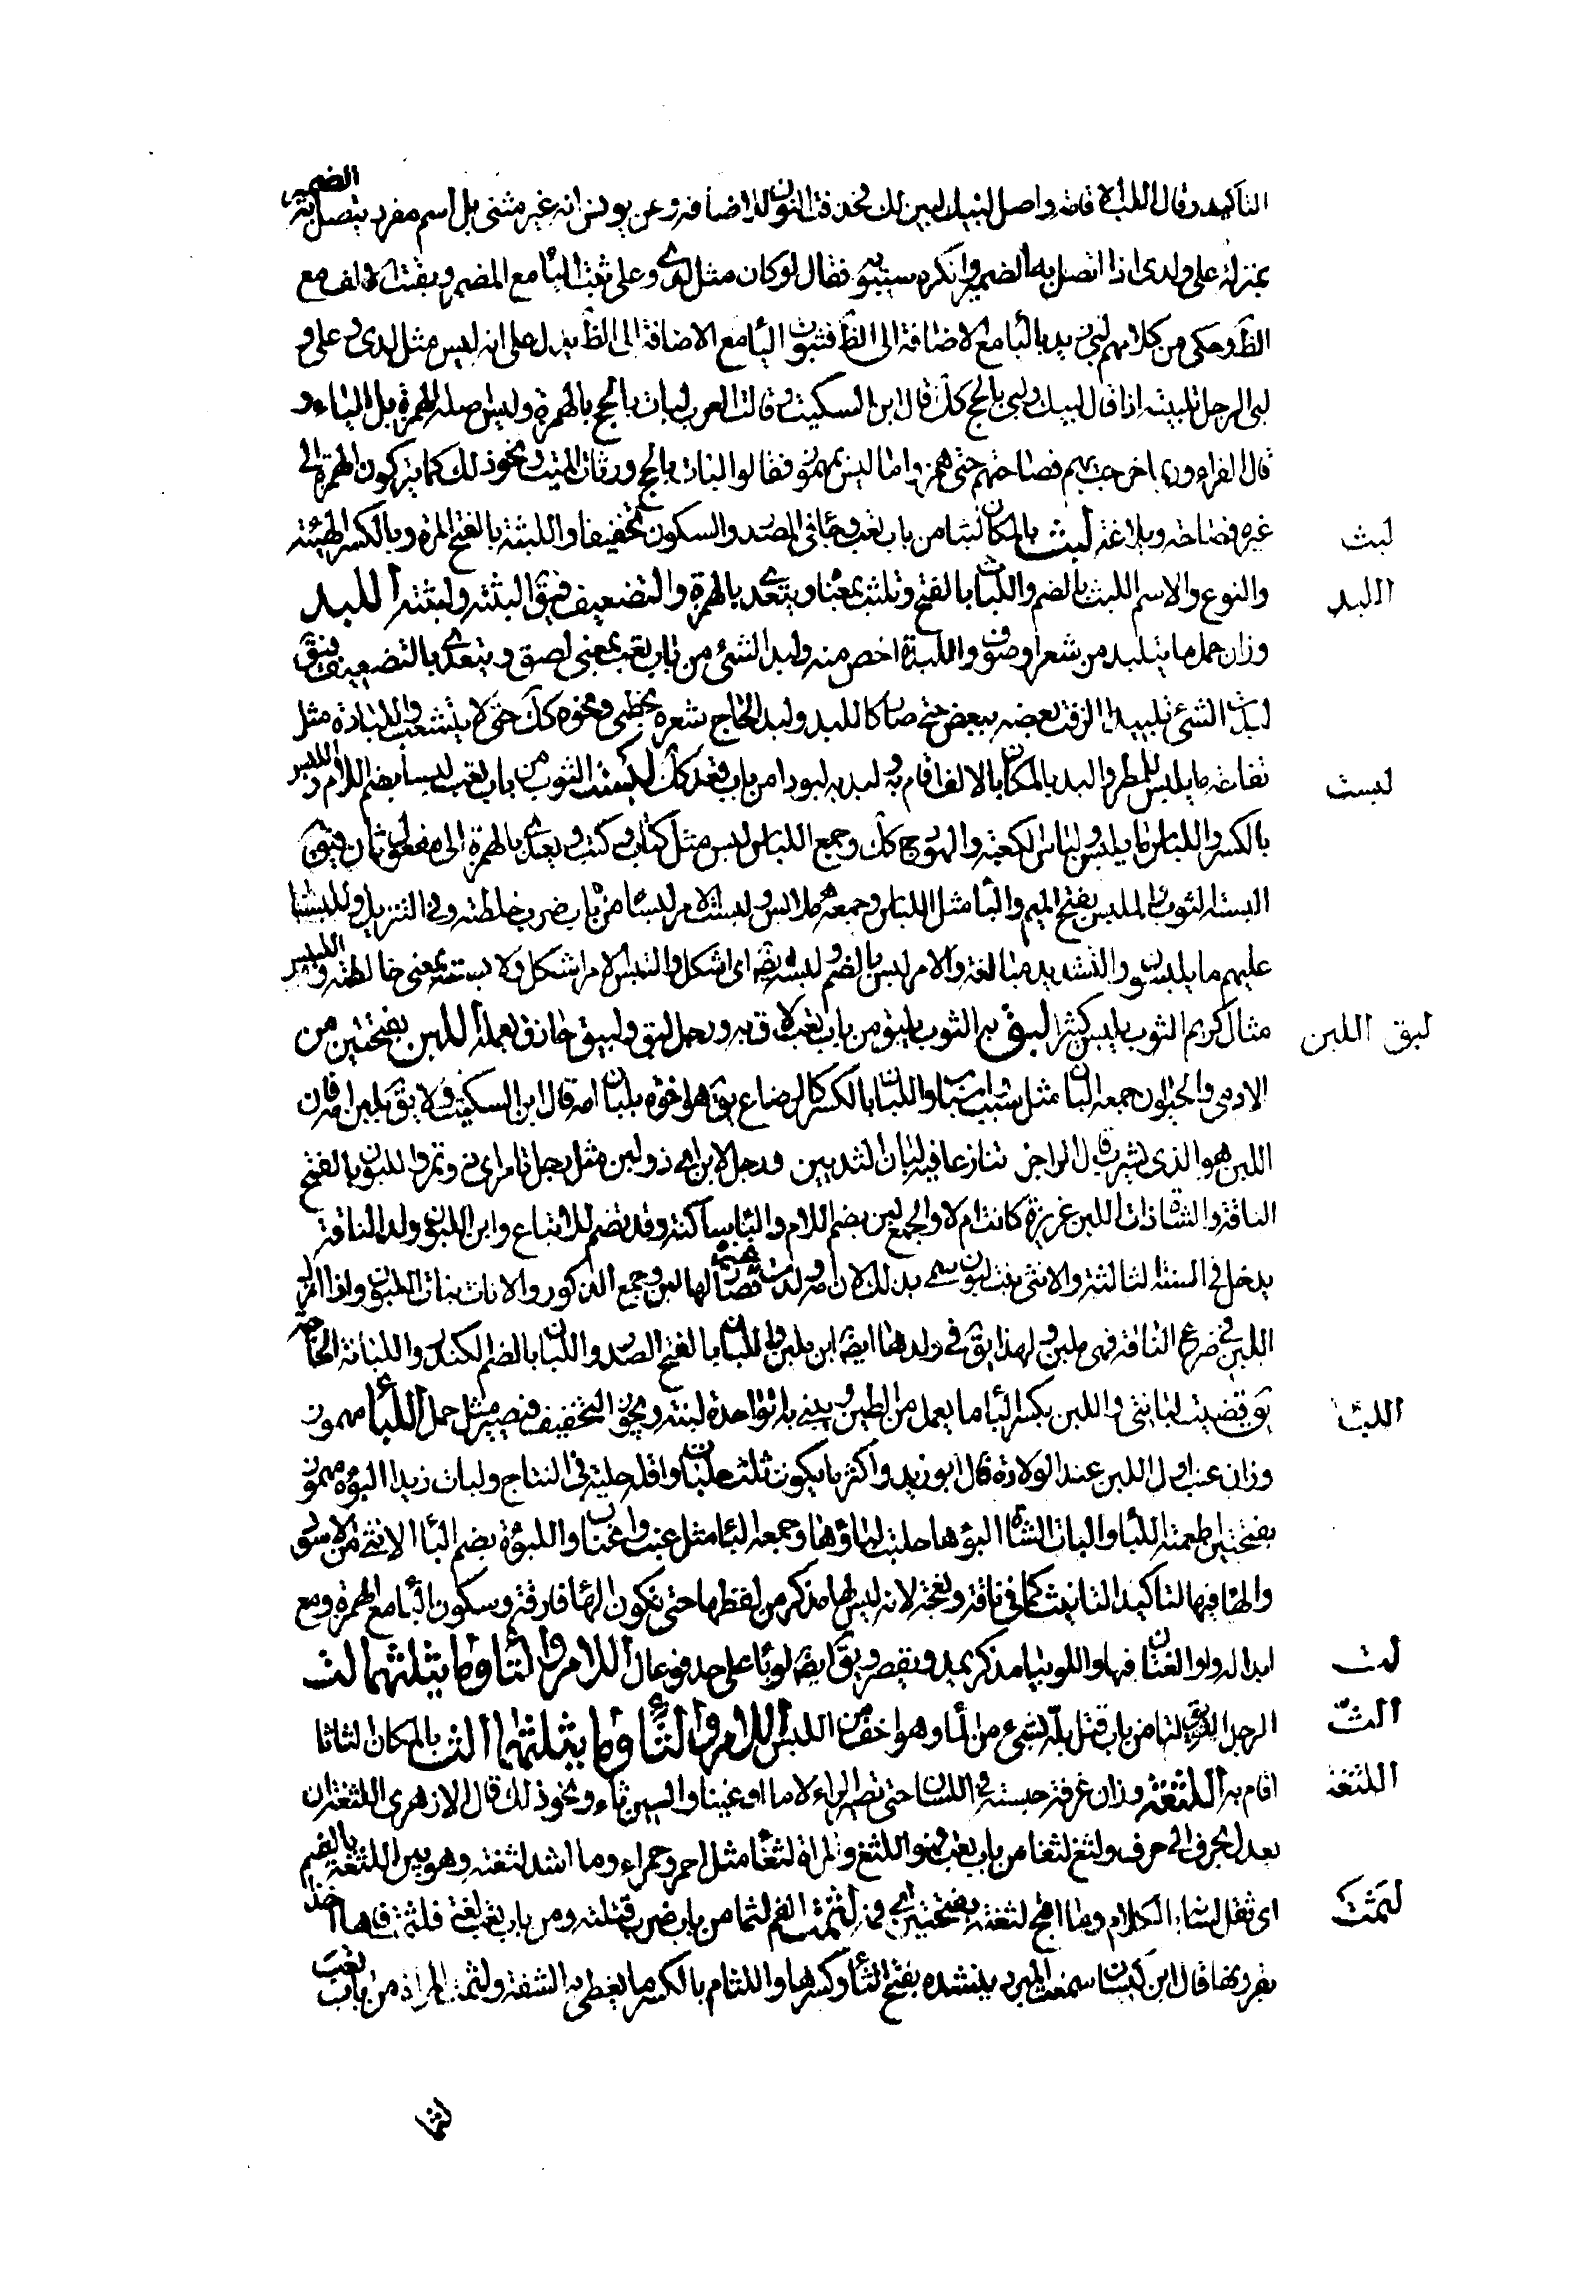 التأكيد وقال اللب الاقامة واصل لبيك لبين لك فحذفت النون للاضافة وعن يونس انه غير مثنى بل اسم مفرد يتصل به الضمير
بمنزلة على ولدى اذا اتصل به الضمير وانكره سيبويه فقال لو كان مثل لدى وعلى ثبت اليا مع المضمر وبقيت الالف مع
الظ وحكى من كلامهم لبى زيد باليا مع الاضافة الى الظ فثبوت اليا مع الاضافة الى الظ يدل على انه ليس مثل لدى وعلى و
لبى الرجل تلبيته اذا قال لبيك ولبى بالحج كك قال ابن السكيت وقالت العرب لبات بالحج بالهمزة وليس اصله الهمزة بل الياء و
قال الفراء وربما خرجت بهم فصاحتهم حتى همزوا ما ليس بمهموز فقالوا لبات بالحج ورثات الميت ونحو ذلك كما يتركون الهمزة الى
غيره فصاحة وبلاغة لبث بالمكان لبثا من باب تعب وجا في المصدر السكون تخفيفا واللبثة بالفتح المرة وبالكسر الهيئة
لبث
والنوع والاسم اللبث بالضم واللباث بالفتح وتلبث بمعناه ويتعدى بالهمزة والتضعيف فيق البثته ولبثته اللبد
اللبد
وزان حمل ما يتلبد من شعر او صوف واللبدة اخص منه ولبد الشئ من باب تعب بمعنى لصق ويتعدى بالتضعيف فيق
لبدت الشئ تلبيدا الزقت بعضه ببعض حتى صار كاللبد ولبد الحاج شعره بخطمى ونحوه كك حتى لا يتشعث واللبادة مثل
تفاحة ما يلبس للمطر والبد بالمكان بالالف اقام به ولبد به لبودا من باب قعد كك لبست الثوب من باب تعب لبسا بضم اللام واللبس
لبست
بالكسر واللباس ما يلبس ولباس الكعبة والهودج كك وجمع اللباس لبس مثل كتاب وكتب ويعدى بالهمزة الى مفعول ثان فيق
البسته الثوب والملبس بفتح الميم والبا مثل اللباس وجمعه ملابس ولبست الامر لبسا من باب ضرب خلطته وفي التنزيل وللبسنا
عليهم ما يلبسون والتشديد مبالغة والامر لبس بالضم ولبسه ايضه اى اشكل والتبس الامر اشكل ولابسته بمعنى خالطته واللبيس
مثال كريم الثوب يلبس كثيرا لبق به الثوب يلبق من باب تعب لاق به ورجل لبق ولبيق حاذق بعمله اللبن بفتحتين من
لبق اللبن
الادمى والحيوان جمعه البان مثل سبب واسباب واللبان بالكسر كالرضاع يق هو اخوه بلبان امه قال ابن السكيت ولا يق بلبن امه فان
اللبن هو الذى يشرب قال الراجز تنازعا فيه لبان الثديين ورجل لابن اى ذو لبن مثل رجل تامر اى ذو تمر واللبون بالفتح
الناقة والشاة ذات اللبن غزيرة كانت ام لا والجمع لبن بضم اللام والبا ساكنة وقد تضم للاتباع وابن اللبون ولد الناقة
يدخل في السنة الثالثة والانثى بنت لبون سمى بذلك لان امه ولدت غيره فصار لها لبن وجمع الذكور والاناث بنات اللبون واذا نزل
اللبن في ضرع الناقة فهى ملبن ولهذا يق في ولدها ايضه ابن ملبن واللبان بالفتح الصدر واللبان بالضم الكندر واللبانة الحاجة
يق قضيت لبانتى واللبن بكسر البا ما يعمل من الطين ويبنى به الواحدة لبنة ويجوز التخفيف فيصير مثل حمل اللبا مهموز
اللبا
وزان عنب اول اللبن عند الولادة قال ابو زيد واكثر ما يكون ثلث حلبات واقله حلبة في النتاج ولبات زيدا البؤه مهموز
بفتحتين اطعمته اللبا ولبات الشاة البؤها حلبت لباؤها وجمعه البا مثل عنب واعناب واللبؤة بضم البا الانثى من الاسود
والها فيها لتاكيد التانيث كما في ناقة ونعجة لانه ليس لها مذكر من لفظها حتى تكون الها فارقة وسكون البا مع الهمزة ومع
ابداله واوا لغتان فيها واللوبيا مذكر يمد ويقصر ويق ايضه لوبا على حد فوعال اللام والتا وما يثلثهما لت
لت
الرجل السويق لتا من باب قتل بله بشئ من الما وهو اخف من اللبس اللام والثا وما يثلثهما الث بالمكان الثاثا
الثّ
اقام به اللثغة وزان غرفة حبسة في اللسان حتى تصير الراء لاما او غينا والسين ثاء ونحو ذلك قال الازهرى اللثغة ان
اللثغة
يعدل بحرف الى حرف ولثغ لثغا من باب تعب فهو الثغ والمراة لثغا مثل احمر وحمراء وما اشد لثغته وهو بين اللثغة بالضم
اى ثقل لسانه بالكلام وما اقبح لثغته بفتحتين اى فمه لثمت الفم لثما من باب ضرب قبلته ومن باب تعب لغة فلثمت فاها اخذا
لثمت
بقرونها قال ابن كيسان سمعت المبرد ينشده بفتح الثا وكسرها واللثام بالكسر ما يغطى به الشفة ولثمت المراة من باب تعب
لثما